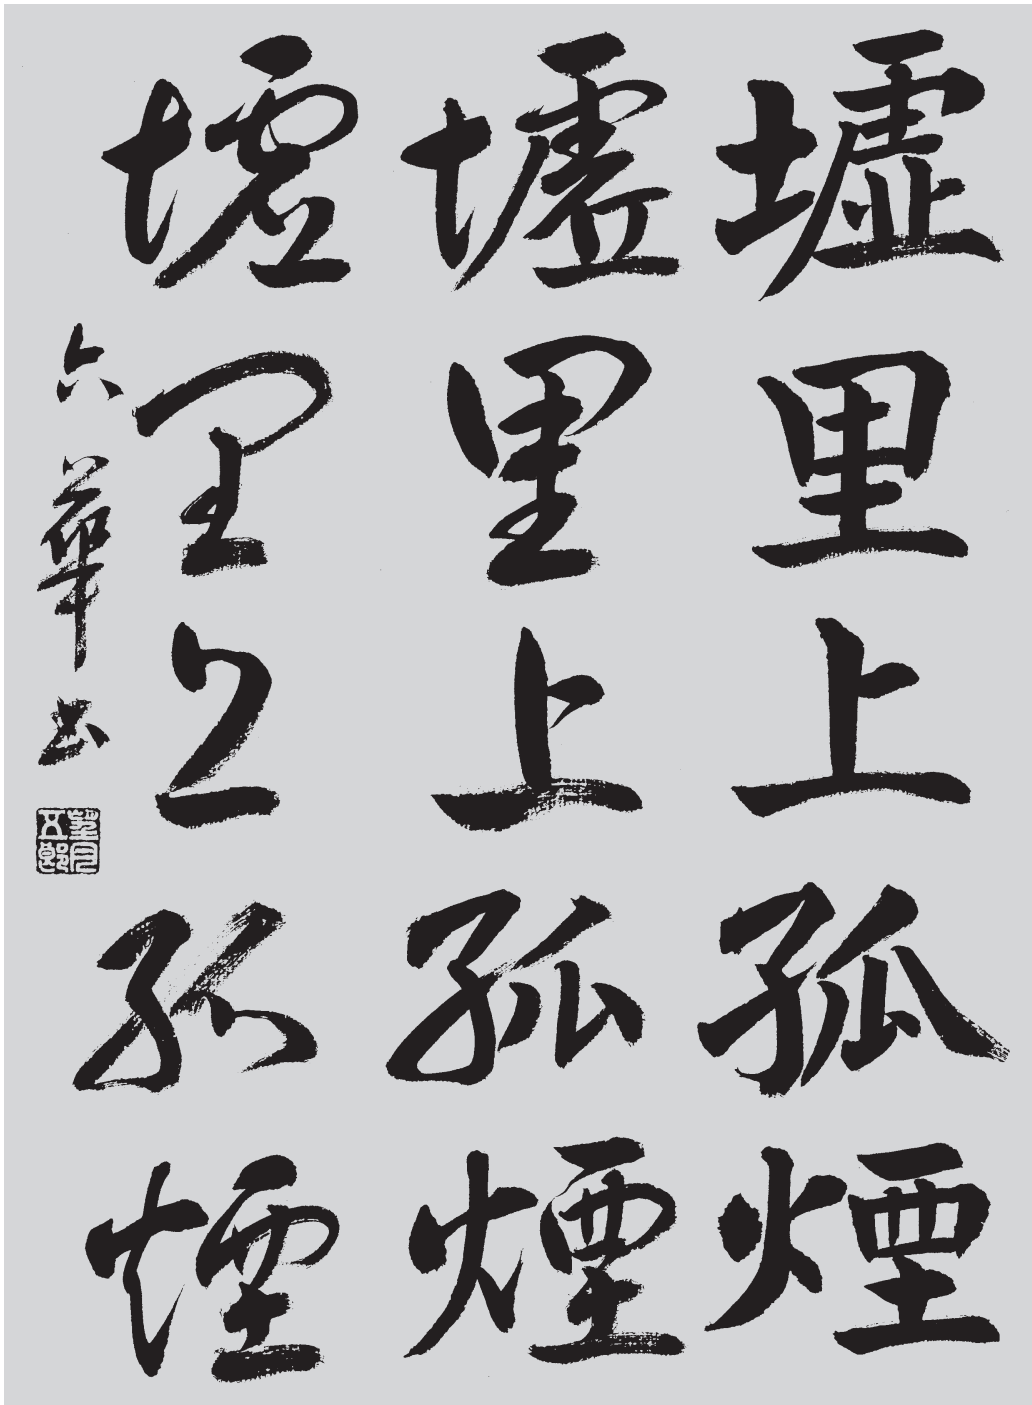 墟里上孤煙
墟里上孤煙
墟里上孤煙
六華書